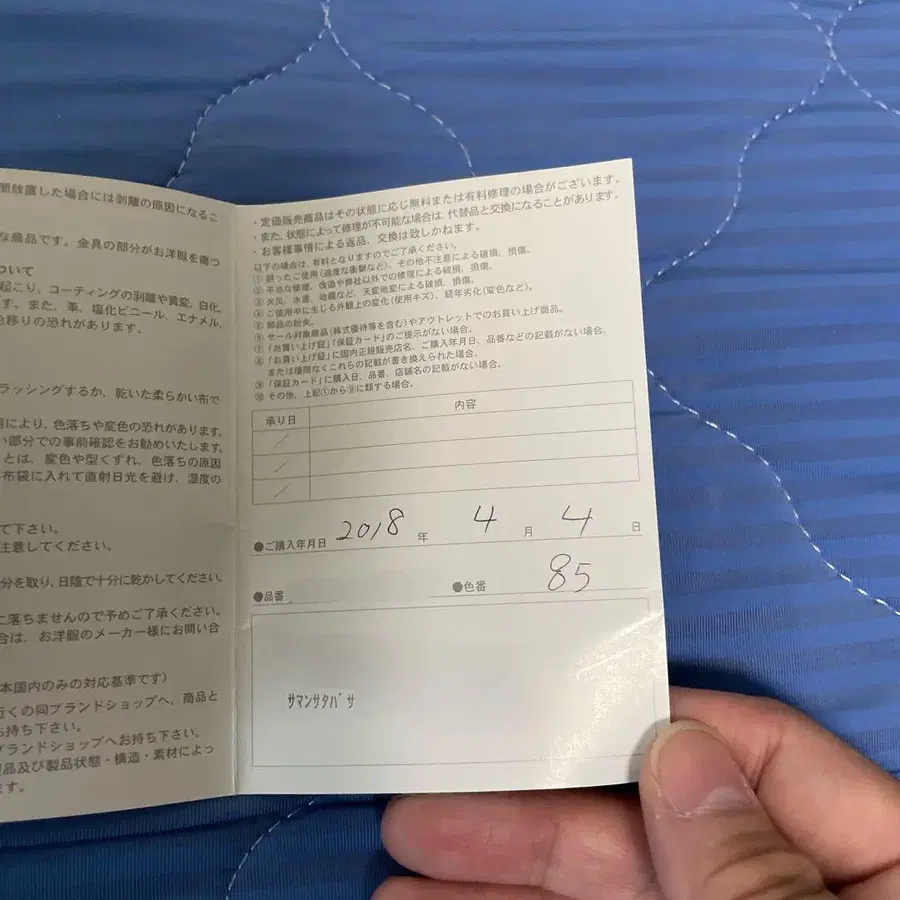 間放置した場合には剥離の原因になるこ
な商品です。金具の部分がお洋服を傷つ
ついて
起こり、コーティングの剥離や黄変、白化、
す。また、革、塩化ビニール、エナメル、
色移りの恐れがあります。
ラッシングするか、乾いた柔らかい布で
用により、色落ちや変色の恐れがあります。
い部分での事前確認をお勧めいたします。
とは、変色や型くずれ、色落ちの原因
布袋に入れて直射日光を避け、湿度の
て下さい。
注意してください。
分を取り、日陰で十分に乾かしてください。
に落ちませんので予めご了承ください。
合は、お洋服のメーカー様にお問い合
本国内のみの対応基準です）
近くの同ブランドショップへ、商品と
お持ち下さい。
ブランドショップへお持ち下さい。
製品及び製品状態・構造・素材によっ
ます。
・定価販売商品はその状態に応じ無料または有料修理の場合がございます。
・また、状態によって修理が不可能な場合は、代替品と交換になることがあります。
・お客様事情による返品、交換は致しかねます。
以下の場合は、有料となりますのでご了承ください。
① 誤ったご使用（過度な衝撃など）、その他不注意による破損、損傷。
② 不当な修理、改造や弊社以外での修理による破損、損傷。
③ 火災、水害、地震など、天変地変による破損、損傷。
④ ご使用中に生じる外観上の変化（使用キズ）、経年劣化（変色など）。
⑤ 部品の紛失。
⑥ セール対象商品（株式優待等を含む）やアウトレットでのお買い上げ商品。
⑦ 「お買い上げ証」「保証カード」のご提示がない場合。
⑧ 「お買い上げ証」に国内正規販売店名、ご購入年月日、品番などの記載がない場合、
または権限なくこれらの記載が書き換えられた場合。
⑨ 「保証カード」に購入日、品番、店舗名の記載がない場合。
⑩ その他、上記①から⑨に類する場合。
承り日 内容
／
／
／
●ご購入年月日 2018 年 4 月 4 日
●品番 ●色番 85
ｻﾏﾝｻﾀﾊﾞｻ